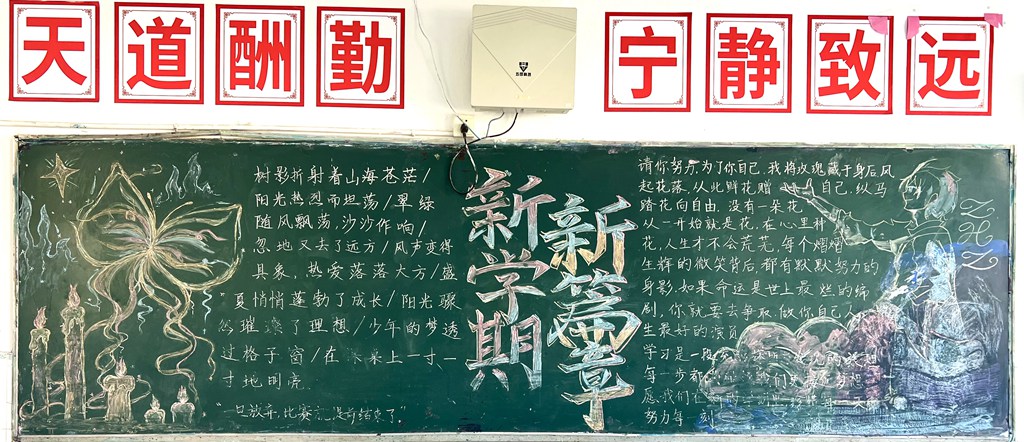 天道酬勤
宁静致远
树影折射着山海苍茫/
阳光热烈而坦荡/翠绿
随风飘荡,沙沙作响/
忽地又去了远方/风声变得
具象,热爱落落大方/盛
夏悄悄蓬勃了成长/阳光骤
然璀璨了理想/少年的梦透
过格子窗/在未来上一寸一
寸地明亮
"一旦放弃,比赛就提前结束了"
新学期
新篇章
请你努力,为了你自己,我将玫瑰藏于身后,风
起花落,从此鲜花赠自己,纵马
踏花向自由,没有一朵花,
从一开始就是花,在心里种
花,人生才不会荒芜,每个熠熠
生辉的微笑背后,都有默默努力的
身影,如果命运是世上最烂的编
剧,你就要去争取做你自己人
生最好的演员
学习是一段
每一步都
愿我们在
努力每一刻
ZHZ